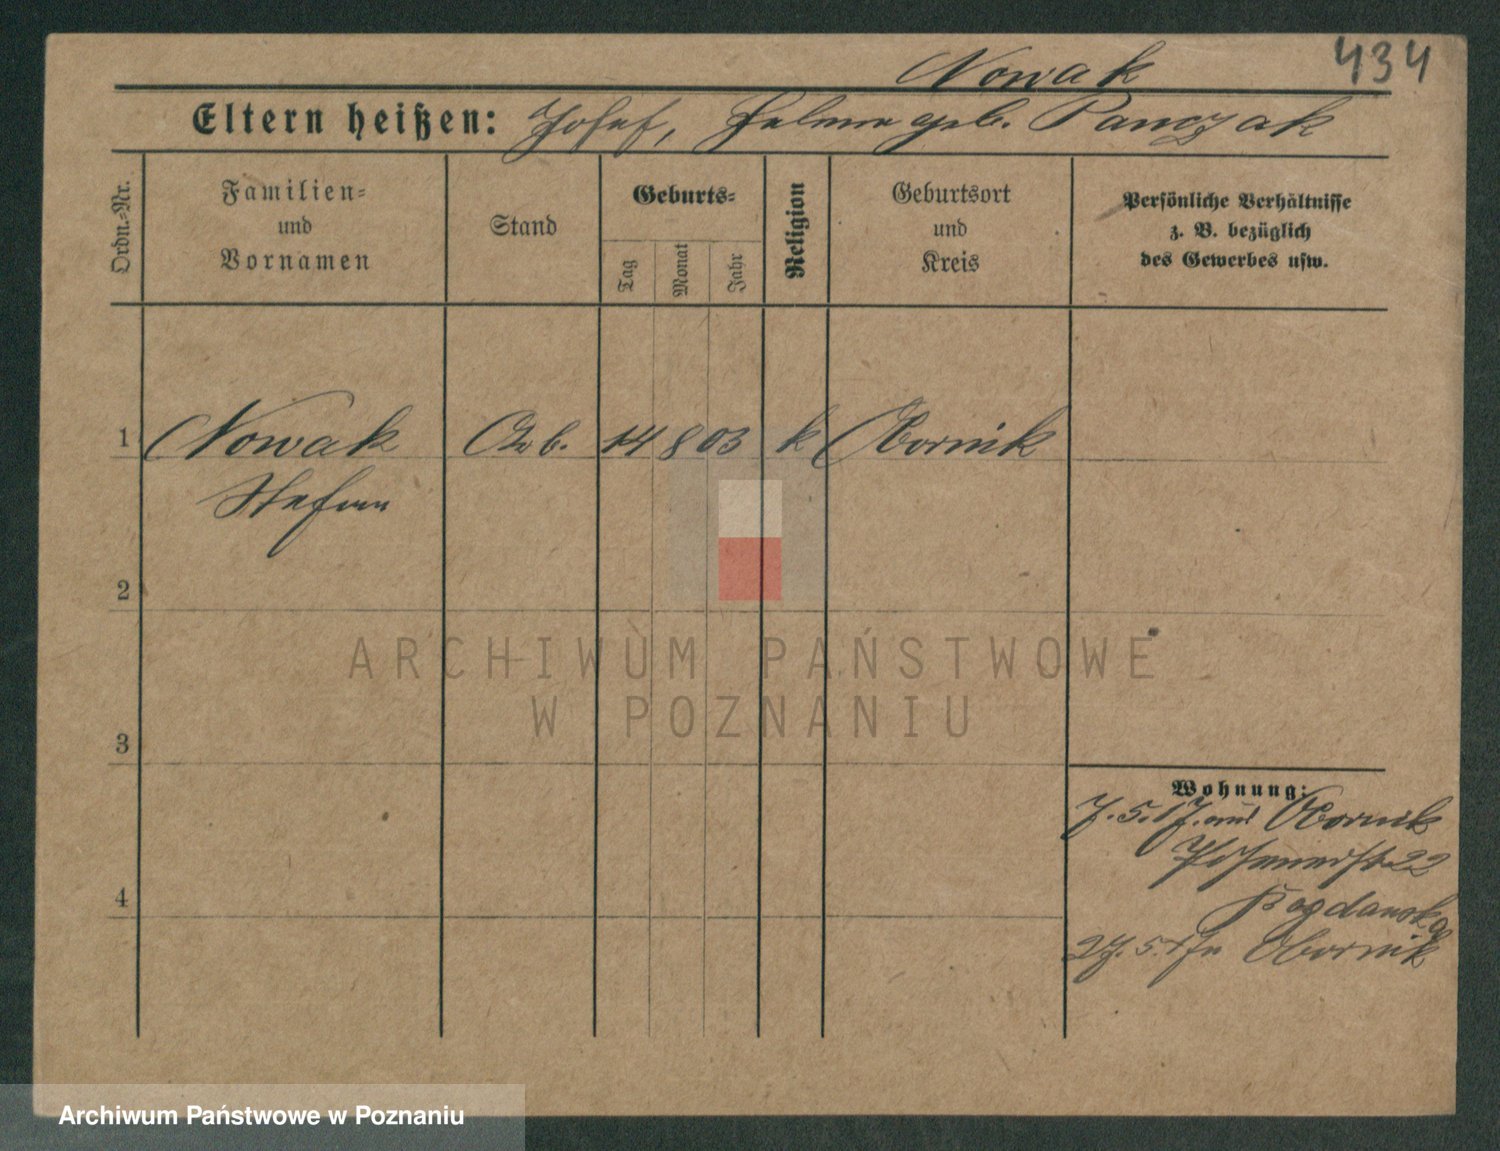 434
Nowak
Eltern heißen: Josef, Helene geb. Panczak
Ordn.=Nr.
Familien=
und
Vornamen
Stand
Geburts=
Tag
Monat
Jahr
Religion
Geburtsort
und
Kreis
Persönliche Verhältnisse
z. B. bezüglich
des Gewerbes usw.
1 Nowak Arb. 14 8 03 k Obornik
Stefan
2
3
4
ARCHIWUM PAŃSTWOWE
W POZNANIU
Wohnung:
7.5.17. aus Obornik
22
Bogdanska
27.5.17 n Obornik
Archiwum Państwowe w Poznaniu